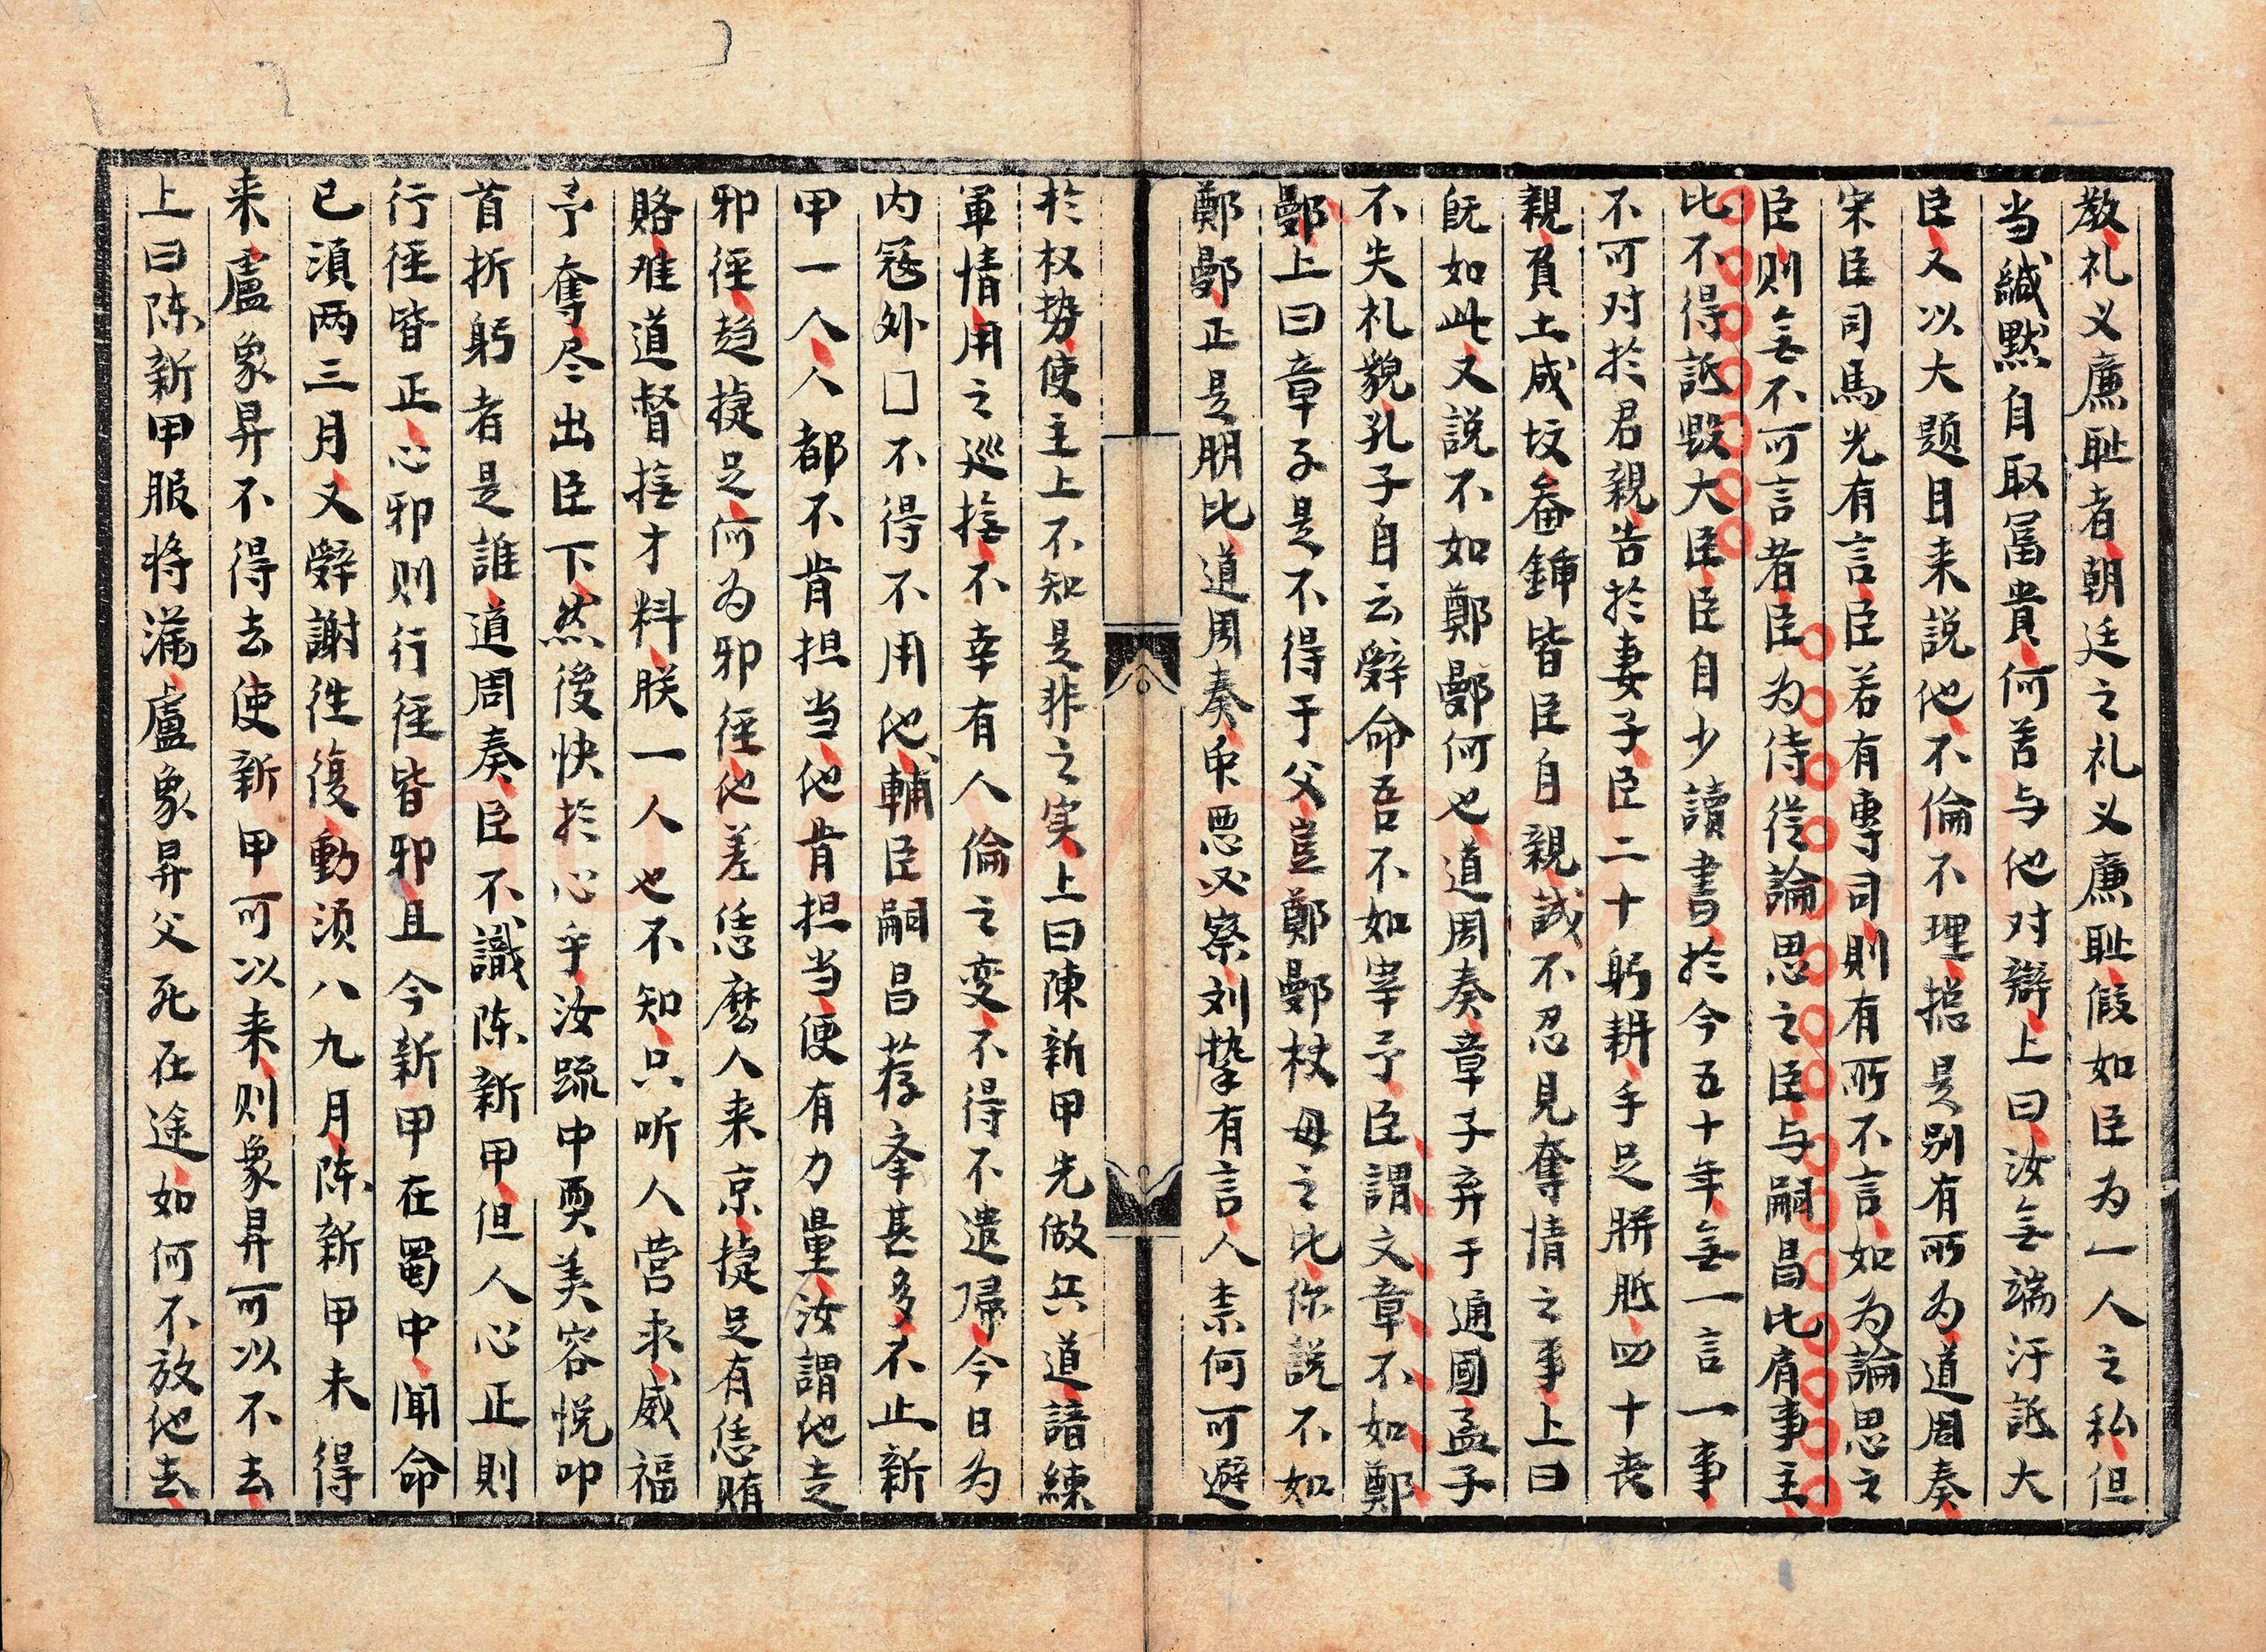 教礼义廉耻者朝廷之礼义廉耻假如臣为一人之私但
当缄默自取冨貴何苦与他对辯上曰汝無端汙詆大
臣又以大题目来説他不倫不理揔是别有所为道周奏
宋臣司馬光有言臣若有專司則有所不言如为論思之
臣则無不可言者臣为侍從論思之臣与嗣昌比肩事主
比不得詆毀大臣臣自少讀書於今五十年無一言一事
不可对於君親告於妻子臣二十躬耕手足胼胝四十丧
親負土成坟畚鍤皆臣自親誠不忍見奪情之事上曰
既如此又説不如鄭鄤何也道周奏章子弃于通國孟子
不失礼貌孔子自云辭命吾不如宰予臣謂文章不如鄭
鄤上曰章子是不得于父豈鄭鄤杖母之比你説不如
鄭鄤正是朋比道周奏衆惡必察刘摯有言人禀何可避
於权势使主上不知是非之实上曰陳新甲先做兵道諳練
軍情用之巡撫不幸有人倫之变不得不遣歸今日为
内冦外囗不得不用他輔臣嗣昌荐奉甚多不止新
甲一人人都不肯担当他肯担当便有力量汝謂他走
邪徑趋捷足何为邪徑他差恁麽人来京捷足有恁賄
賂难道督撫才料朕一人也不知只听人营求威福
予奪尽出臣下然後快於心乎汝疏中耎美容悦叩
首折躬者是誰道周奏臣不識陈新甲但人心正則
行徑皆正心邪则行徑皆邪且今新甲在蜀中闻命
已湏两三月又辭謝往復動須八九月陈新甲未得
来盧象昇不得去使新甲可以来则象昇可以不去
上曰陈新甲服将滿盧象昇父死在途如何不放他去